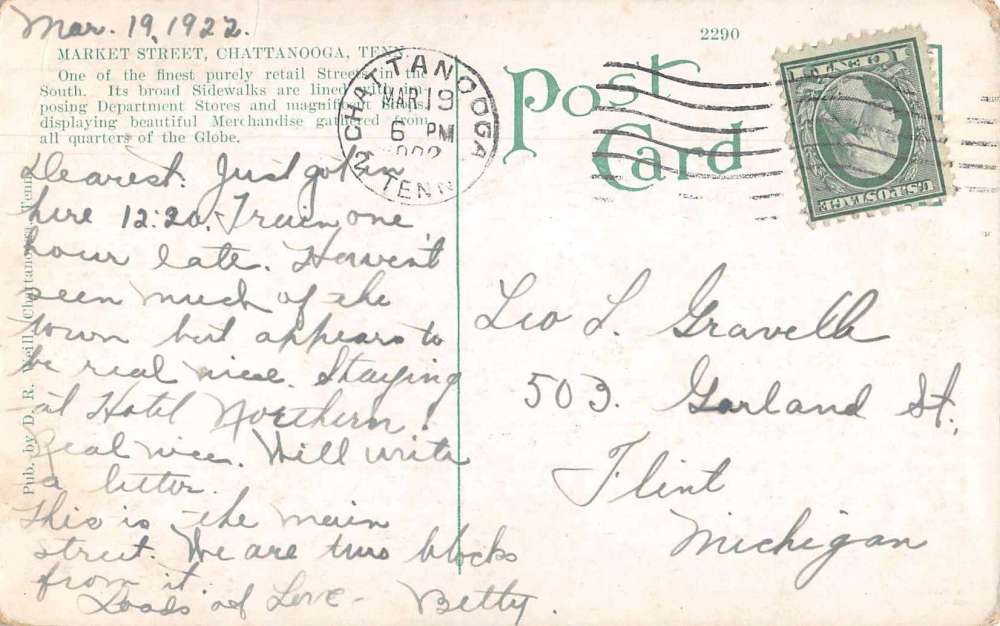 Mar. 19, 1922.
MARKET STREET, CHATTANOOGA, TENN.
One of the finest purely retail Streets in the
South. Its broad Sidewalks are lined with
posing Department Stores and magnificent
displaying beautiful Merchandise gathered from
all quarters of the Globe.
Dearest: Just got in
here 12:20. Train one
hour late. Haven't
seen much of the
town but appears to
be real nice. Staying
at Hotel Northern.
Real nice. Will write
a letter.
This is the main
street. We are two blocks
from it.
Loads of Love - Betty.
Pub. by D. R. Weill, Chattanooga, Tenn.
2290
Post
Card
CHATTANOOGA
MAR 19
6 PM
TENN
1 CENT 1
U.S. POSTAGE
Leo L. Gravelle
503. Garland St.,
Flint
Michigan